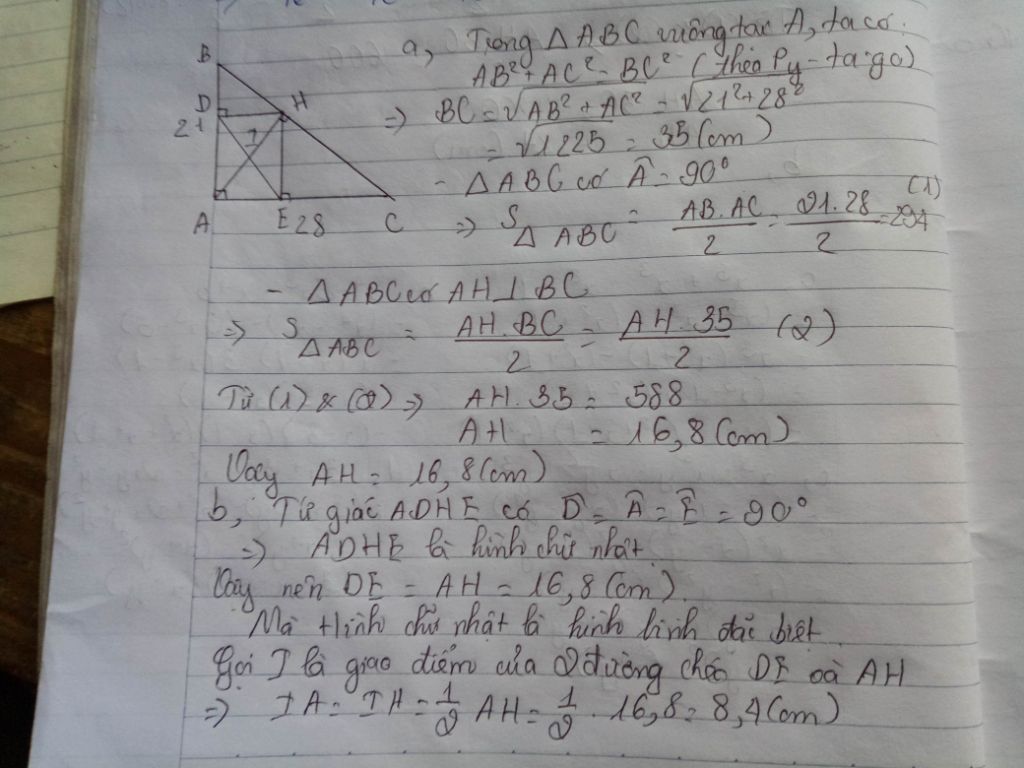 a, Trong △ABC vuông tại A, ta có:
AB² + AC² = BC² (theo Py-ta-go)
⇒ BC = √AB² + AC² = √21² + 28²
= √1225 = 35 (cm)
- △ABC có Â = 90°
⇒ S△ABC = AB.AC/2 = 21.28/2 = 294 (1)
B
D
H
21
I
A
E
28
C
- △ABC có AH ⊥ BC
⇒ S△ABC = AH.BC/2 = AH.35/2 (2)
Từ (1) & (2) ⇒ AH.35 = 588
AH = 16,8 (cm)
Vậy AH = 16,8 (cm)
b, Tứ giác ADHE có D̂ = Â = Ê = 90°
⇒ ADHE là hình chữ nhật
Vậy nên DE = AH = 16,8 (cm).
Mà Hình chữ nhật là hình bình đặc biệt
Gọi I là giao điểm của 2 đường chéo DE và AH
⇒ IA = IH = 1/2 AH = 1/2 . 16,8 = 8,4 (cm)